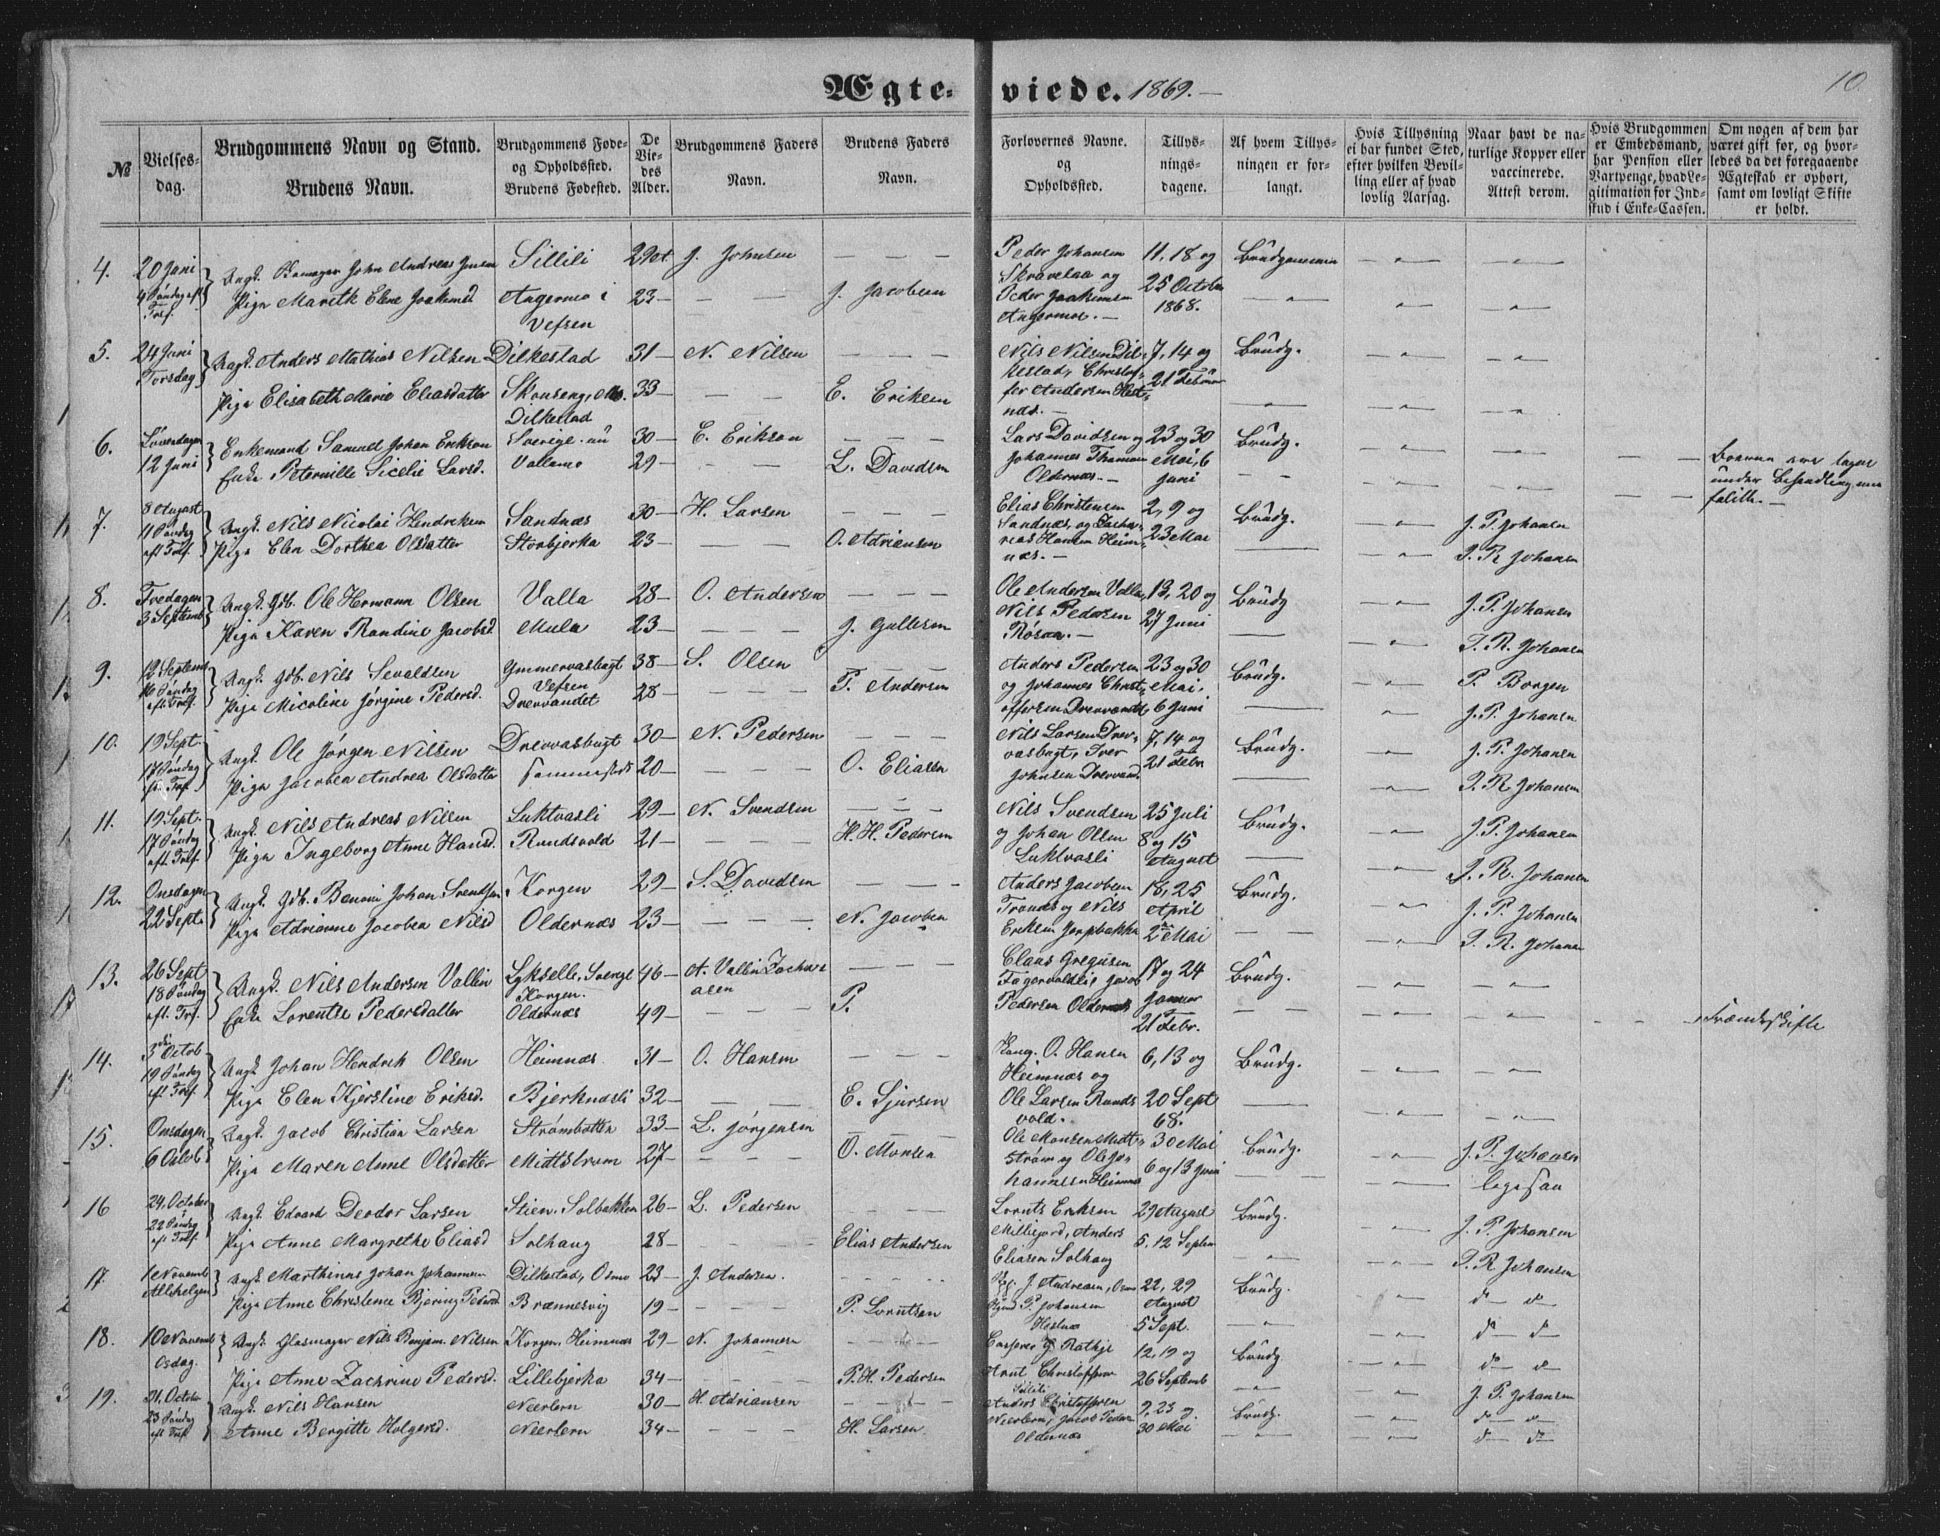 Ægte-
viede. 1869.—
10
№
Vielses-
dag.
Brudgommens Navn og Stand.
Brudens Navn.
Brudgommens Føde-
og Opholdssted.
Brudens Fødested.
De
Vie-
des
Alder.
Brudgommens Faders
Navn.
Brudens Faders
Navn.
Forlovernes Navne.
og
Opholdssted.
Tillys-
nings-
dagene.
Af hvem Tillys-
ningen er for-
langt.
Hvis Tillysning
ei har fundet Sted,
efter hvilken Bevil-
ling eller af hvad
lovlig Aarsag.
Naar havt de na-
turlige Kopper eller
vaccinerede.
Attest derom.
Hvis Brudgommen
er Embedsmand,
har Pension eller
Vartpenge, hvad Le-
gitimation for Ind-
skud i Enke-Cassen.
Om nogen af dem har
været gift før, og hvor-
ledes da det foregaaende
Ægteskab er ophørt,
samt om lovligt Skifte
er holdt.
4. 20 Juni Ungk. John Andreas Sillili 29 J. Johnsen — — — Peder Johansen 11, 18 og Brudgommen — " — — " —
4 Søndag eft Pige Marith Elene Joakimsd Angermo i 23 — — — J. Jacobsen Skravelaa og 25 October — " — — " — — " —
Tref. Vefsen Peder Joakimsen 1868.
Angermo. —
5. 24 Juni Ungk. Anders Mathias Nilsen Dilkestad 31 — N. Nilsen — — — Nils Nilsen Dil- 7, 14 og Brudg. — " — — " —
Torsdag Pige Elisabeth Marie Eliasdatter Skonseng, Mo. 33 — — — E. Eriksen kestad, Christof- 21 Februar — " — — " —
Dilkestad fer Andersen Hest-
næs. —
6. 12 Juni Enkemand Samuel Johan Erikson Sverige. nu 30 — E. Erikson — — — Lars Davidsen og 23 og 30 Brudg. — " — — " — — —
Enke Peternille Sicelie Larsd. Vallamo 29 — — — L. Davidsen Johannes Mai, 6 — — — " — — " — — — under Behandling
Oldernæs. — Juni
7. 8 August Ungk. Nils Nicolai Hendriksen Sandnæs 30 — H. Larsen — — — Elias Christensen 2, 9 og Brudg. — " — J. P. Johansen
11 Søndag Pige Elen Dorthea Olsdatter Storbjerka 23 — — — O. Adriansen Sandnæs, og Zacha- 23 Mai — — " — J. R. Johansen
eft Tref. rias Hansen Heim-
næs. —
8. Fredagen Ungk. Gdb. Ole Hermann Olsen Valla 28 — O. Andersen — — — Ole Andersen Valla, 13, 20 og Brudg — " — J. P. Johansen
3 Septemb Pige Karen Randine Jacobsd Mula 23 — — — — J. Gullesen Nils Pedersen 27 Juni — — " — J. R. Johansen
Røsaa. —
9. 12 Septemb Ungk. Gdb. Nils Sevaldsen Ymmervasbugt 38 — S. Olsen — — — Anders Pedersen 23 og 30 Brudg. — " — P. Borgen
16 Søndag Pige Nicoline Jørgine Pedersd. Vefsen 28 — — — — P. Andersen og Johannes Christ- Mai, — — " — J. P. Johansen
eft Tref. Drevvandet offersen Drevvandt 6 Juni
10. 19 Sept Ungk. Ole Jørgen Nilsen Drevvasbugt 30 — N. Pedersen — — — Nils Larsen Drev- 7, 14 og Brudg. — " — J. P. Johansen
17 Søndag Pige Jacobea Andrea Olsdatter sammesteds 20 — — — — O. Eliasen vasbugt, Iver 21 Febr — — " — J. R. Johansen
eft Tref Johnsen Drevvand
11. 19 Sept. Ungk. Nils Andreas Nilsen Luktvasli 29 — N. Svendsen — — — Nils Svendsen 25 Juli Brudg. — " — J. P. Johansen
17 Søndag Pige Ingeborg Anne Hansd. Rundsvold 21 — — — — H. H. Pedersen og Johan Olsen 8 og 15 — — " — J. R. Johansen
eft. Tref. Luktvasli August
12. Onsdagen Ungk. Gdb. Benoni Johan Svendsen Korgen 29 — S. Davidsen — — — Anders Jacobsen 18, 25 Brudg. — " — J. P. Johansen
22 Sept. Pige Adrianne Jacobea Nilsd Oldernæs 23 — — — — N. Jacobsen Trands og Nils April — — — " — J. R. Johansen
Eriksen 2 Mai
13. 26 Sept Ungk. Nils Andersen Vallin Lykselle, Sverige 46 — A. Vallin Zachari- — — — Claus Gregusen 17 og 24 Brudg. — " — — " —
18 Søndag Enke Lorentse Pedersdatter Korgen. asen Jacob Januar — — — " — — " — — — Frændeskifte
eft. Tref. Oldernæs 49 — — — — P. Pedersen Oldernæs 21 Febr.
14. 3die Octob Ungk. Johan Hendrik Olsen Heimnæs 31 — O. Hansen — — — O. Hansen 6, 13 og Brudg. — " — — " —
19 Søndag Pige Elen Kjerstine Eriksd. Bjerknæsli 32 — — — E. Sjursen Heimnæs og 20 Sept — — " — — " —
eft Tref. Ole Larsen Runds 68.
vold.
15. Onsdagen Ungk. Jacob Christian Larsen Strømbotten 33 — L. Jørgensen — — — Ole Monsen Midt- 30 Mai Brudg. — " — J. P. Johansen
6 Octob Pige Maren Anne Olsdatter Midtstrøm 27 — — — — O. Monsen strøm og Ole Jo- 6 og 13 Juni — — — " — ligesaa
hannesen Heimnæs
16 24. October Ungk. Edvard Deodor Larsen Stien, Solbakken 26 — L. Pedersen — — — Lornts Eriksen 29 August Brudg. — " — J. P. Johansen
22 Søndag Pige Anne Margrethe Eliasd Solhaug 28 — — — — Elias Andersen Millefjord, Anders 5, 12 Septem — " — — " — J. R. Johansen
eft Tref. Eliasen Solhaug
17 1 Novemb Ungk. Marthinus Johan Johannesen Dilkestad, Osmo 23 — J. Andersen. — — — J. Andreasen, Osmo 22, 29 Brudg. — " — d° d°
Allehelgen Pige Anne Christense Bjering Pedersd Brænnesvig 19 — — — — P. Lorntsen P. Johansen August — " — — " — d° d°
Hestnæs 5 Sept.
18. 10 Novemb Ungk. Glasmager Nils Benjam. Nilsen Korgen, Heimnæs 29 — N. Johannesen — — — G Rathje 12, 19 og Brudg — " — d° d°
Osdag. Pige Anne Zachrine Pedersd. Lillebjerka 34 — — — — P. H. Pedersen Knut Christoffersen 26 Septemb — " — — " — J. P. Johansen
Sillili
19. 21. October Ungk. Nils Hansen Neerlern 30 — H. Adriansen — — — Anders Christoffersen 9, 23 og Brudg. — " — d° d°
23 Søndag Anne Bergitte Holgersd. Neerlern 34 — — — — H. Larsen. Neerlern, Jacob Peder 30 Mai — — — " — d° d°
eft Tref Oldernæs